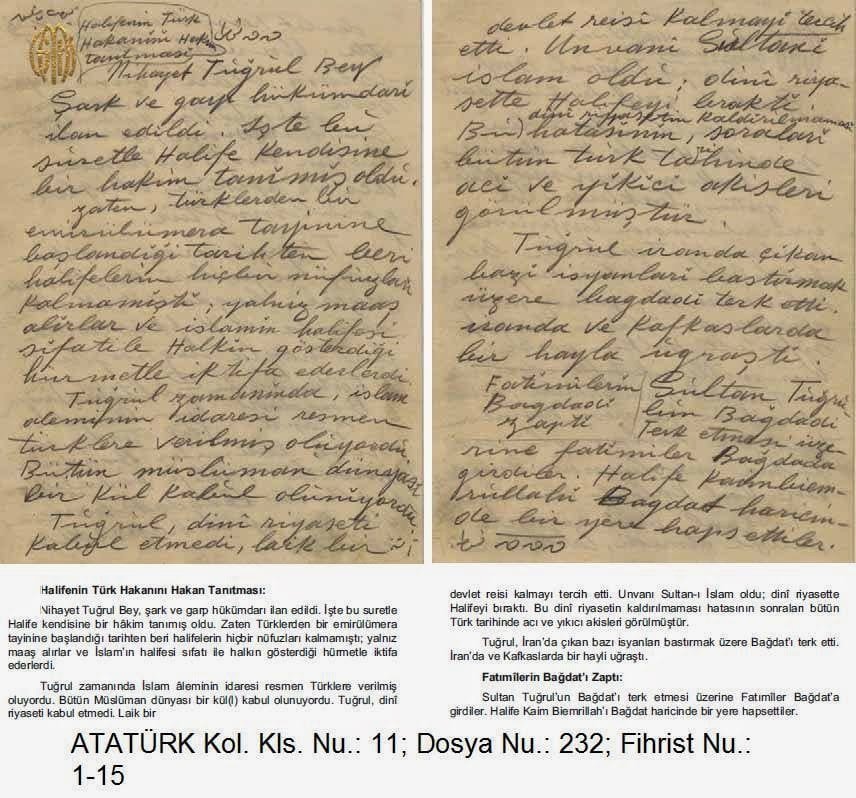 Halifenin Türk
Hakanini Hakan
tanitmasi
Nihayet Tuğrul Bey
Şark ve garp hükümdari
ilan edildi. Işte bu
suretle Halife Kendisine
bir hakim tanimiş oldu.
zaten, türklerden bir
emirülümera tayinine
başlandiği tarihten beri
halifelerin hiçbir nüfuzlari
Kalmamişti; yalniz maaş
alirlar ve islamin halifesi
sifatile Halkin gösterdiği
hürmetle iktifa ederlerdi.
Tuğrul zamaninda, islam
aleminin idaresi resmen
türklere verilmiş oluyordu.
Bütün müsluman dunyasi
bir Kül Kabul olunuyordu.
Tuğrul, dinî riyaseti
Kabul etmedi, laik bir
devlet reisi Kalmayi tercih
etti. Unvani Sultani
islam oldu; dinî riya-
sette Halifeyi brakti.
Bu dinî riyasetin Kaldirilmamasi
hatasinin, soralari
bütün türk tarihinde
aci ve yikici akisleri
görülmüştür.
Tuğrul iranda çikan
bazi isyanlari bastirmak
üzere bagdadi terk etti.
iranda ve Kafkaslarda
bir hayla ugraşti.
Fatimilerin
Bagdadi
zapti
Sultan Tuğru-
lun Bağdadi
Terk etmesi üze-
rine fatimiler Bağdada
girdiler. Halife Kaimbiem-
rüllahi Bagdat haricin-
de bir yere hapsettiler.
Halifenin Türk Hakanını Hakan Tanıtması:
Nihayet Tuğrul Bey, şark ve garp hükümdarı ilan edildi. İşte bu suretle
Halife kendisine bir hâkim tanımış oldu. Zaten Türklerden bir emirülümera
tayinine başlandığı tarihten beri halifelerin hiçbir nüfuzları kalmamıştı; yalnız
maaş alırlar ve İslam'ın halifesi sıfatı ile halkın gösterdiği hürmetle iktifa
ederlerdi.
Tuğrul zamanında İslam âleminin idaresi resmen Türklere verilmiş
oluyordu. Bütün Müslüman dünyası bir kül(l) kabul olunuyordu. Tuğrul, dinî
riyaseti kabul etmedi. Laik bir
devlet reisi kalmayı tercih etti. Unvanı Sultan-ı İslam oldu; dinî riyasette
Halifeyi bıraktı. Bu dinî riyasetin kaldırılmaması hatasının sonraları bütün
Türk tarihinde acı ve yıkıcı akisleri görülmüştür.
Tuğrul, İran'da çıkan bazı isyanları bastırmak üzere Bağdat'ı terk etti.
İran'da ve Kafkaslarda bir hayli uğraştı.
Fatımîlerin Bağdat'ı Zaptı:
Sultan Tuğrul'un Bağdat'ı terk etmesi üzerine Fatımîler Bağdat'a
girdiler. Halife Kaim Biemrillah'ı Bağdat haricinde bir yere hapsettiler.
ATATÜRK Kol. Kls. Nu.: 11; Dosya Nu.: 232; Fihrist Nu.:
1-15